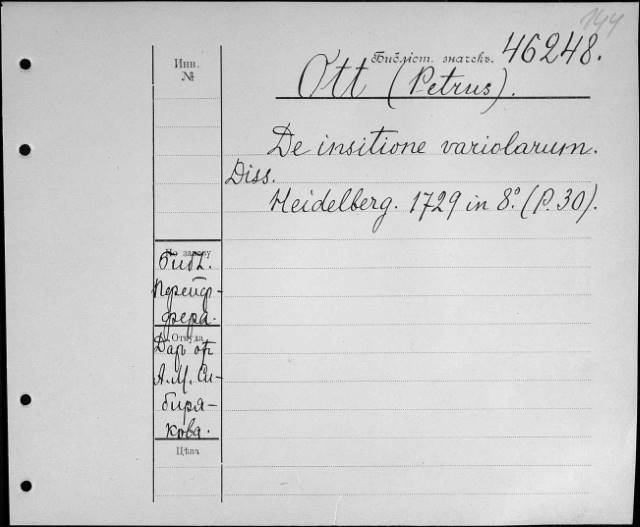 144
Инв.
№
Библіот. значекъ. 46248.
Ott (Petrus).
De insitione variolarum.
Diss.
Heidelberg. 1729 in 8º. (P. 30).
Библ.
Пфейф-
фера.
Откуда
Даръ от
А. М. Си-
биря-
кова.
Цѣна